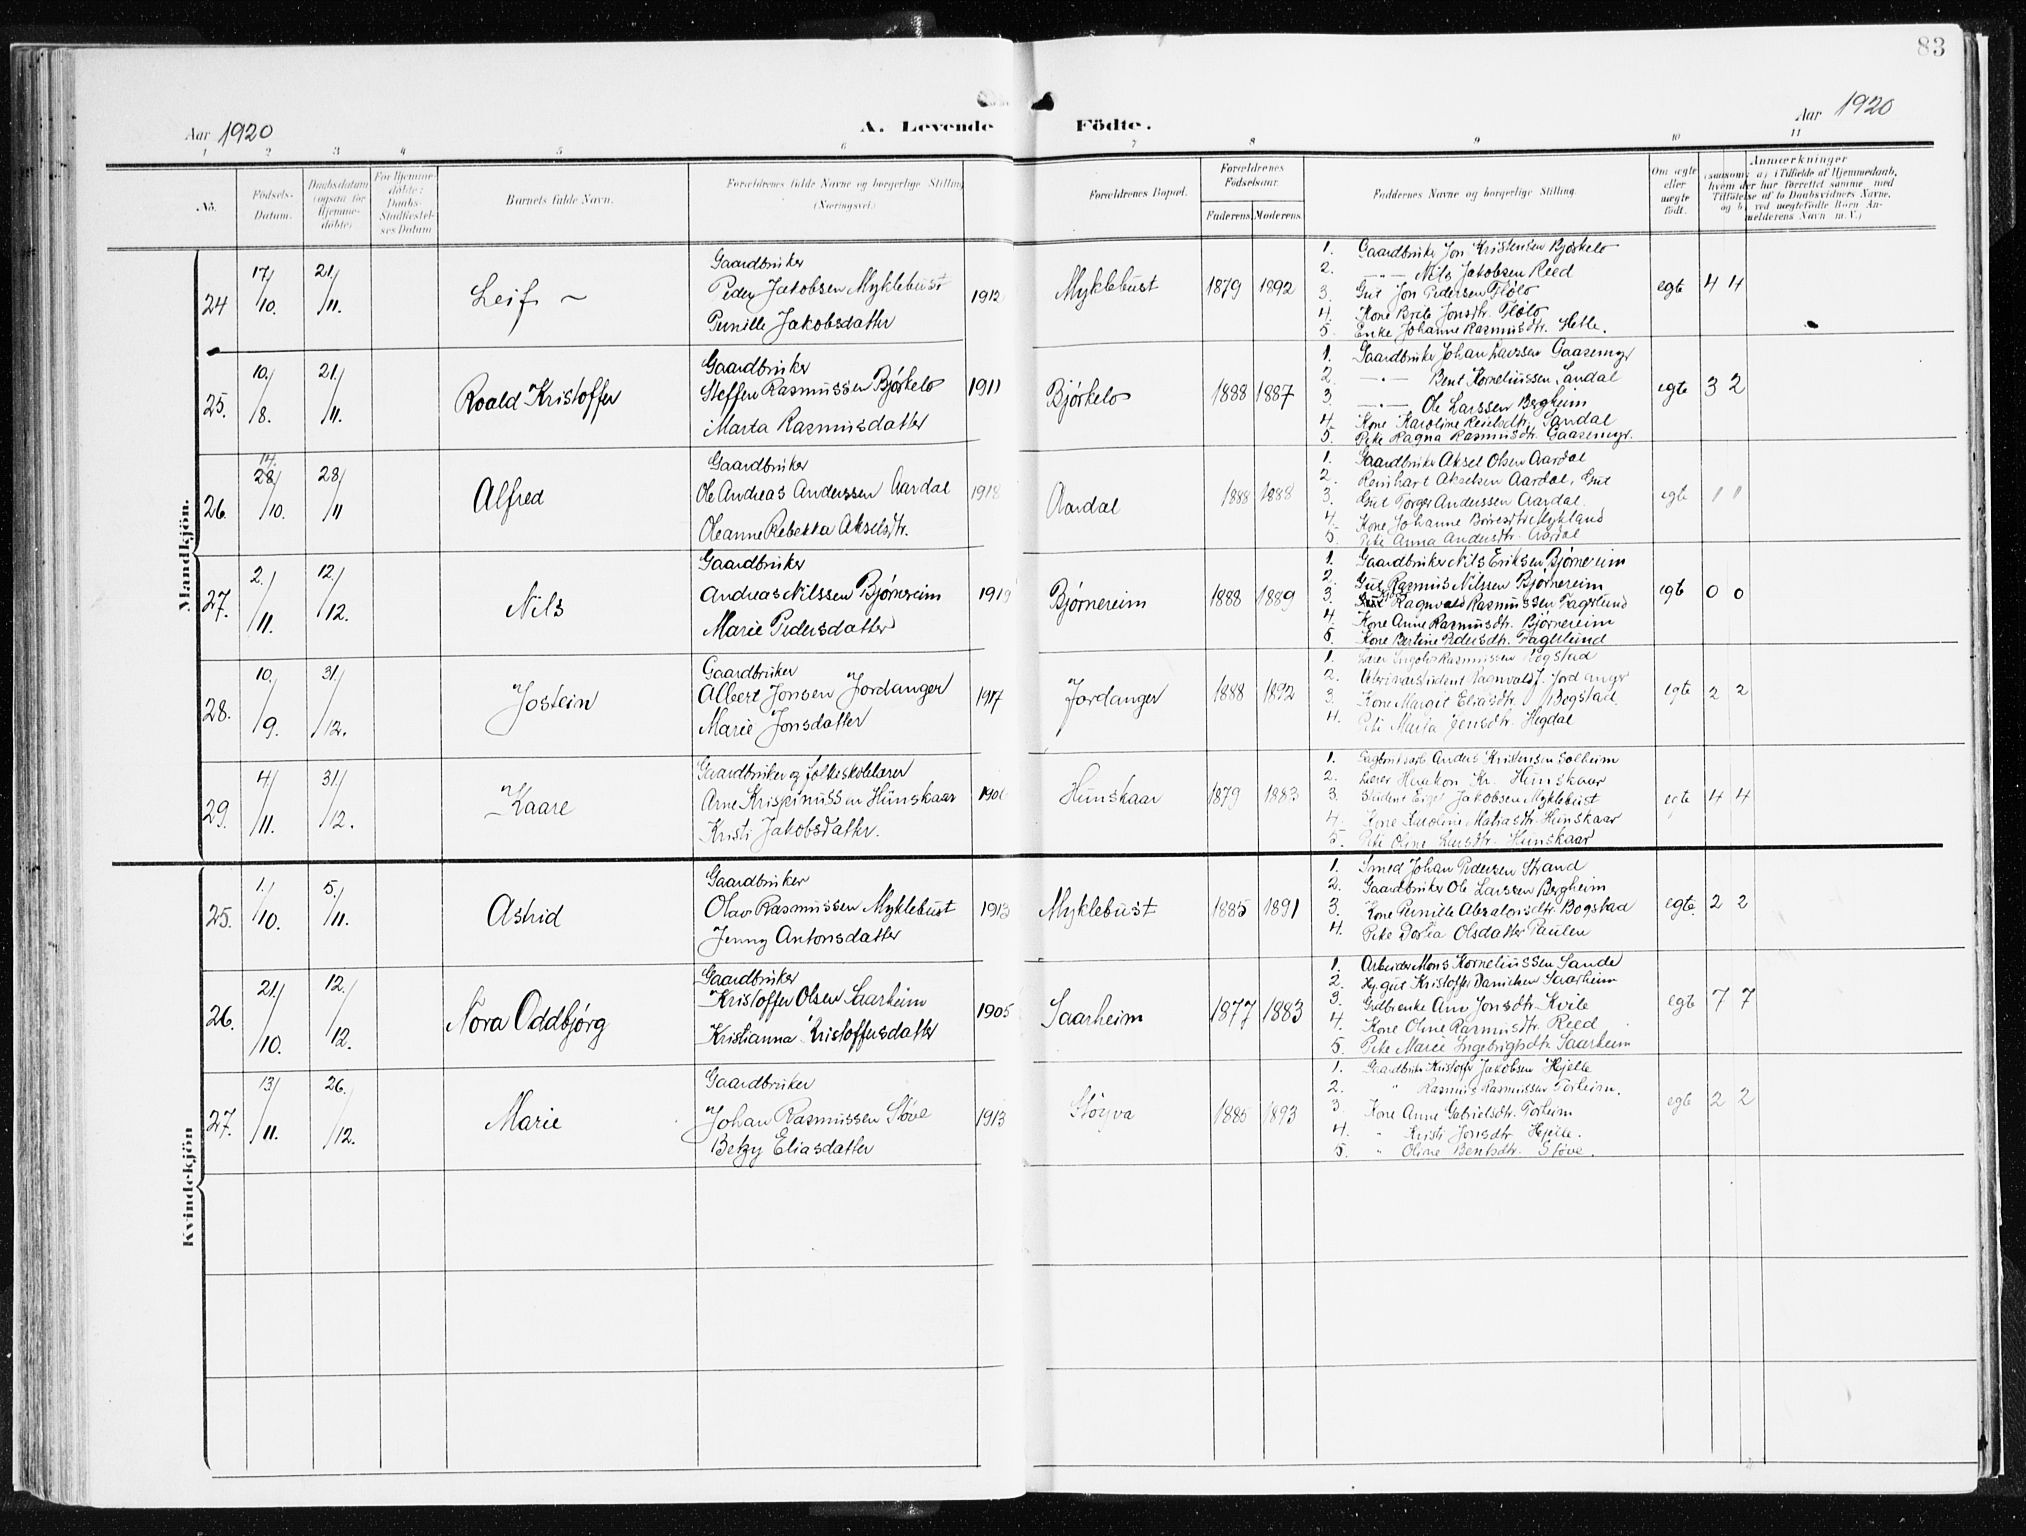 83
Aar 1920
A. Levende Födte.
Aar 1920
1 2 3 4 5 6 7 8 9 10 11
No.
Födsels-Datum.
Daabsdatum (ogsaa for Hjemme-döbte)
For Hjemme-döbte: Daabs-Stadfæstel-ses Datum
Barnets fulde Navn.
Forældrenes fulde Navne og borgerlige Stilling (Næringsvei.)
Forældrenes Bopæl.
Forældrenes Födselsaar.
Faderens. Moderens.
Faddernes Navne og borgerlige Stilling.
Om ægte eller uægte födt.
Anmærkninger
(saasom: a) i Tilfælde af Hjemmedaab,
hvem der har forrettet samme, med
Tilföielse af to Daabsvidners Navne,
og b) ved uægtefödte Børn An-
melderens Navn m. V.)
Mandkjön.
24 17/10. 21/11. Leif ~
Gaardbruker
Peder Jakobsen Myklebust
Pernille Jakobsdatter
1912 Myklebust 1879 1892
1. Gaardbruker Jon Kristensen Bjørkelo
2. —"— Nils Jakobsen Reed
3. Gut Jon Pedersen Fløto
4. Kone Brite Jonsdtr. Fløto
5. Enke Johanne Rasmusdtr. Hetle.
egte 4 4
25. 10/8. 21/11. Roald Kristoffer
Gaardbruker
Steffen Rasmussen Bjørkelo
Marta Rasmusdatter
1911 Bjørkelo 1888 1887
1. Gaardbruker Johan Larssen Gaasemyr
2. —"— Bent Korneliussen Sandal
3 —"— Ole Larssen Bergheim
4. Kone Karoline Reielsdtr. Sandal
5. Pike Ragna Rasmusdtr. Gaasemyr.
egte 3 2
26. 14. 28/10. 28/11 Alfred
Gaardbruker
Ole Andreas Anderssen Aardal
Oleanne Rebekka Akselsdtr.
1918 Aardal 1888 1888
1. Gaardbruker Aksel Olsen Aardal
2. Reinhart Akselsen Aardal, Gut
3. Gut Torger Anderssen Aardal
4. Kone Johanne Børresdtr Mykland
5. Pike Anna Andersdtr. Aardal
egte 1 1
27. 2./11. 12./12. Nils
Gaardbruker
Andreas Nilssen Bjørnereim
Marie Pedersdatter
1919 Bjørnereim 1888 1889
1. Gaardbruker Nils Eriksen Bjørnereim
2. Gut Rasmus Nilssen Bjørnereim
3. Ragnvald Rasmussen Fagerlund
4. Kone Anne Rasmusdtr. Bjørnereim
5. Kone Bertine Pedersdtr. Fagerlund
egte 0 0
28. 10./9. 31./12. Jostein
Gaardbruker
Albert Jonsen Jordanger
Marie Jonsdatter
1917 Jordanger 1888 1892
1. Lærer Ingolv Rasmussen Bogstad
2. Veterinærstudent Ragnvald J. Jordanger
3. Kone Margit Eliasdtr. Bogstad
4. Pike Marta Jensdtr. Hegdal
egte 2 2
29. 4/11. 31/12. Kaare
Gaardbruker og folkeskolelærer
Arne Krispinussen Hunskaar
Kristi Jakobsdatter.
Hunskaar 1879 1883
1. Anders Kristensen Solheim
2. Lærer Haakon Kr. Hunskaar
3. Student Jakobsen Myklebust
4. Kone Karoline Matiasdtr. Hunskaar
5. Pike Oline Larsdtr. Hunskaar
egte 4 4
Kvindekjön
25. 1./10. 5./11. Astrid
Gaardbruker
Olav Rasmussen Myklebust
Jenny Antonsdatter
1913 Myklebust 1885 1891
1. Smed Johan Pedersen Strand
2. Gaardbruker Ole Larssen Bergheim
3. Kone Pernille Absalonsdtr. Bogstad
4. Pike Dortia Olsdatter Paulen
egte. 2 2
26. 21./10. 12./12. Nora Oddbjørg
Gaardbruker
Kristoffer Olsen Saarheim
Kristianna Kristoffersdatter
1905 Saarheim 1877 1883
1. Arbeider Mons Korneliussen Sande
2. Hj. gut Kristoffer Danielsen Saarheim
3. Gdbr.enke Ann Jonsdtr. Kvile
4. Kone Oline Rasmusdtr. Reed
5. Pike Marie Ingebrigtsdtr. Saarheim
egte 7 7
27. 13/11. 26./12. Marie
Gaardbruker
Johan Rasmussen Støve
Betzy Eliasdatter
1913 Støyva 1885 1893
1. Gaardbruker Kristoffer Jakobsen Hjelle
2. " Rasmus Rasmussen Torheim.
3. Kone Anne Gabrielsdtr. Torheim
4. " Kristi Jonsdtr. Hjelle.
5. " Oline Bentsdtr. Støve.
egte 2 2